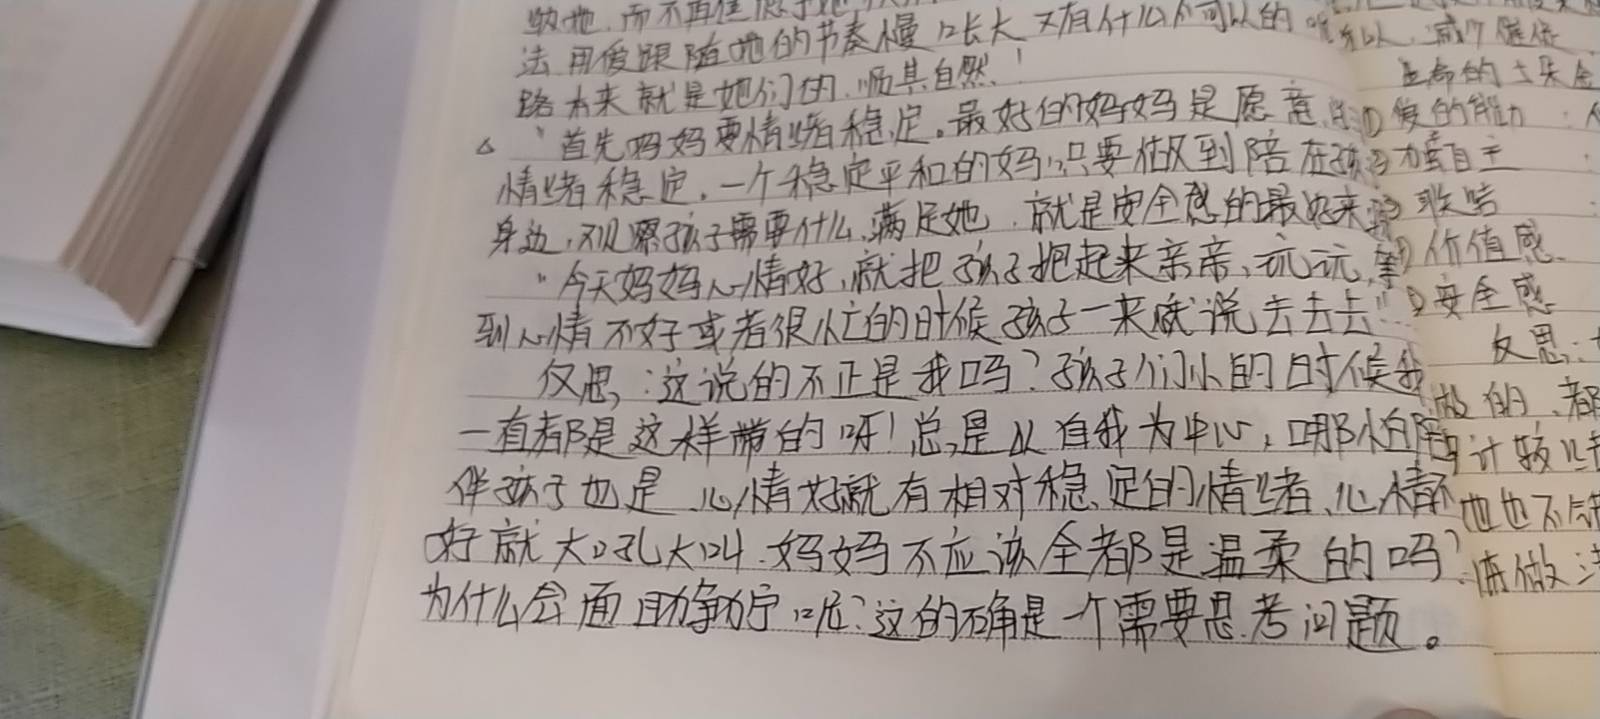 法用爱跟随她的节奏慢慢长大又有什么不可以的呢
路本来就是她们的.顺其自然!
△ "首先妈妈要情绪稳定。最好的妈妈是愿意
情绪稳定.一个稳定平和的妈妈,只要做到陪在孩子
身边,观察孩子需要什么.满足她.就是安全感的最好来源
"今天妈妈心情好,就把孩子抱起来亲亲、玩玩,等
到心情不好或者很忙的时候孩子一来就说去去去"
反思:这说的不正是我吗?孩子们小的时候我
一直都是这样带的呀!总是以自我为中心,哪怕陪
伴孩子也是心情好就有相对稳定的情绪、心情不
好就大吼大叫.妈妈不应该全都是温柔的吗?
为什么会面目狰狞呢?这的确是一个需要思考问题。
所以,减少催促
生命的
爱的能力:
力量自主:
联结:
价值感
安全感
反思:
做的、都
计较
她也不